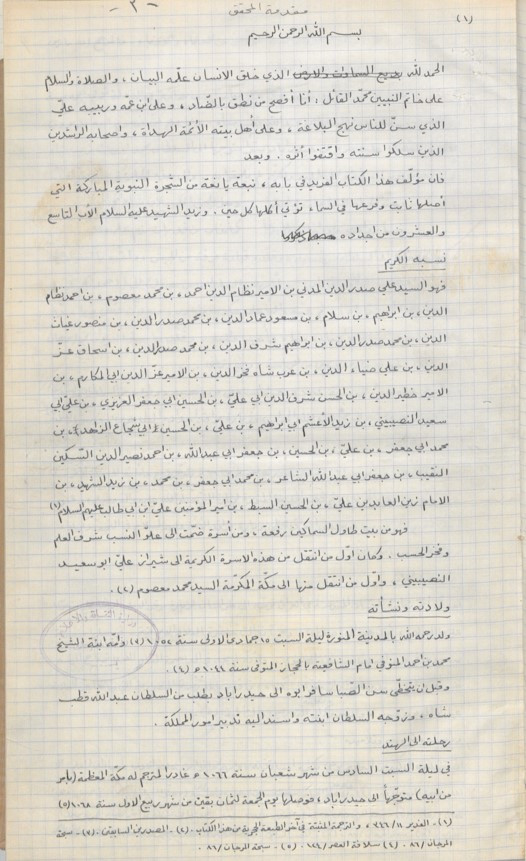 - ٣ -
مقدمة المحقق
(١)
بسم الله الرحمن الرحيم
الحمد لله بديع السماوات والارض الذي خلق الانسان علّمه البيان ، والصلاة والسلام
على خاتم النبيين محمد القائل : أنا أفصح من نطق بالضاد ، وعلى ابن عمّه وربيبه عليّ
الذي سنّ للناس نهج البلاغة ، وعلى أهل بيته الأئمة الهداة ، واصحابه الراشدين
الذين سلكوا سنته واقتفوا أثره . وبعد
فان مؤلف هذا الكتاب الفريد في بابه ، نبعة يانعة من الشجرة النبوية المباركة التي
أصلها ثابت وفرعها في السماء تؤتي أكلها كل حين . وزيد الشهيد عليه السلام الأب التاسع
والعشرون من اجداده
نسبه الكريم
فهو السيد علي صدر الدين المدني بن الامير نظام الدين احمد ، بن محمد معصوم ، بن احمد نظام
الدين ، بن ابراهيم ، بن سلام ، بن مسعود عماد الدين ، بن محمد صدر الدين ، بن منصور غياث
الدين ، بن محمد صدر الدين ، بن ابراهيم شرف الدين ، بن محمد صدر الدين ، بن اسحاق عزّ
الدين ، بن علي ضياء الدين ، بن عرب شاه فخر الدين ، بن الامير عز الدين ابي المكارم ، بن
الامير خطير الدين ، بن الحسن شرف الدين ابي عليّ ، بن الحسين ابي جعفر العزيزي ، بن عليّ ابي
سعيد النصيبيني ، بن زيد الأعشم ابي ابراهيم ، بن عليّ ، بن الحسين (ابي شجاع الزاهد) ، بن
محمد ابي جعفر ، بن عليّ ، بن الحسين ، بن جعفر ابي عبد الله ، بن احمد نصير الدين السّكين
النقيب ، بن جعفر ابي عبد الله الشاعر ، بن محمد ابي جعفر ، بن محمد ، بن زيد الشهيد ، بن
الامام زين العابدين عليّ ، بن الحسين السبط ، بن امير المؤمنين عليّ ابن ابي طالب عليهم السلام (١)
فهو من بيت طاول السماكين رفعة ، ومن أسرة ضمّت الى علوّ النسب شرف العلم
وفخر الحسب . وكان اوّل من انتقل من هذه الاسرة الكريمة الى شيراز عليّ ابو سعيد
النصيبيني ، واوّل من انتقل منها الى مكّة المكرّمة السيد محمد معصوم (٢).
ولادته ونشأته
ولد رحمه الله بالمدينة المنورة ليلة السبت ١٥ جمادى الاولى سنة ١٠٥٢ (٣) وأمّه ابنة الشيخ
محمد بن احمد المنوفي امام الشافعية بالحجاز المتوفى سنة ١٠٤٤ ه (٤).
وقبل ان يتخطّى سنّ الصّبا سافر ابوه الى حيدر اباد بطلب من السلطان عبد الله قطب
شاه ، وزوّجه السلطان ابنته واسند اليه تدبير امور المملكة .
رحلته الى الهند
في ليلة السبت السادس من شهر شعبان سنة ١٠٦٦ ه غادر المترجم له مكّة المعظمة (بأمر
من ابيه) متوجّهاً الى حيدر اباد ، فوصلها يوم الجمعة لثمان بقين من شهر ربيع الاول سنة ١٠٦٨ (٥)
(١)- الغدير ١١/٣٤٦ ، والترجمة المثبتة في آخر الطبعة الحجرية من هذا الكتاب . (٢)- المصدرين السابقين . (٣)- سبحة
المرجان /٨٦ . (٤) سلافة العصر /١٢٤ . (٥). سبحة المرجان /٨٦ .